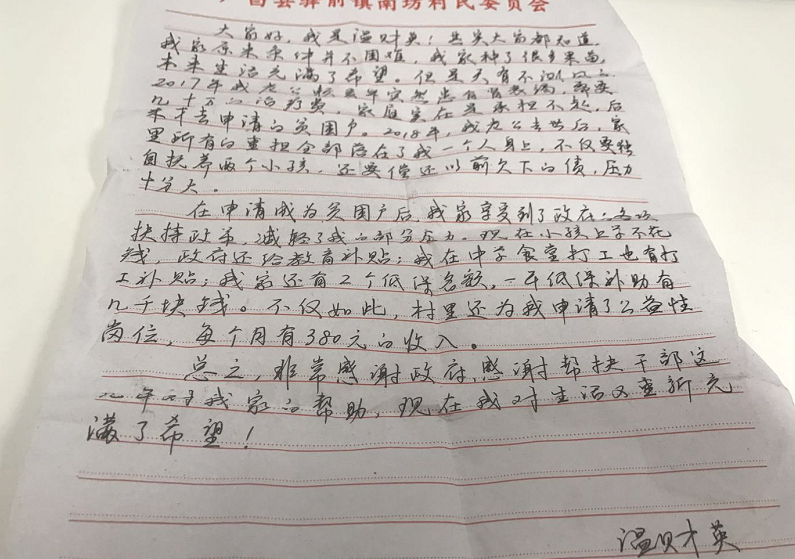 广昌县驿前镇南坊村民委员会
大家好，我是温财英！其实大家都知道，
我家原来条件并不困难，我家种了很多果苗，
未来生活充满了希望。但是天有不测风云，
2017年我老公检查年突然患有，需要
几十万的治疗费，家庭实在是承担不起，后
来才去申请的贫困户。2018年，我老公去世后，家
里所有的重担全部落在了我一个人身上，不仅要独
自抚养两个小孩，还要偿还以前欠下的债，压力
十分大。
在申请成为贫困户后，我家享受到了政府的各项
扶持政策，减轻了我的部分压力。现在小孩上学不花
钱，政府还给教育补贴；我在中学食堂打工也有打
工补贴；我家还有2个低保名额，一年低保补助有
几千块钱。不仅如此，村里还为我申请了公益性
岗位，每个月有380元的收入。
总之，非常感谢政府，感谢帮扶干部这
几年对我家的帮助，现在我对生活又重新充
满了希望！
温财英